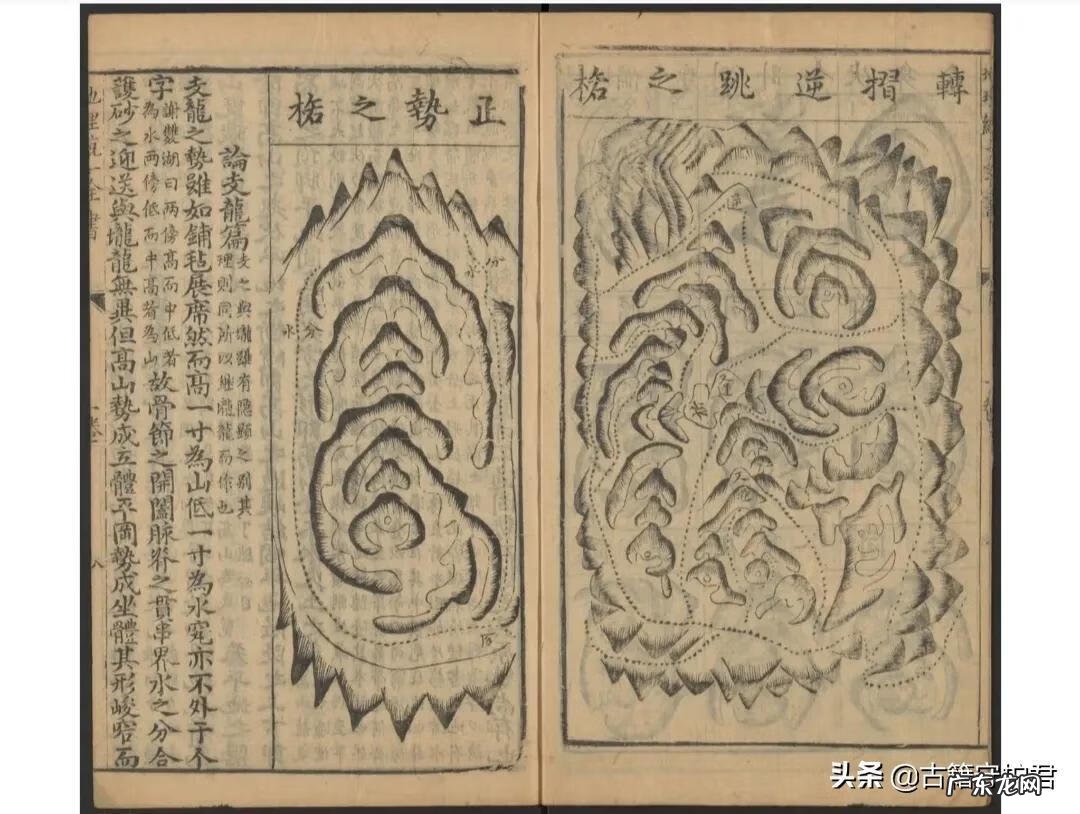 轉摺逆跳之格
逆
逆
正勢之格
分
水
分
水
論支龍篇支之與壠雖有隱顯之別其
理則同所以継壠龍而作也
支龍之勢雖如鋪毡展席然而高一寸為山低一寸為水寔亦不外于个
字謝雙湖曰兩傍高而中低者
為水兩傍低而中高者為山故骨節之開闔脉脊之貫串界水之分合
護砂之迎送與壠龍無異但高山勢成立體平岡勢成坐體其形峻窄而
卷一
八
头条 @古籍守护君
广东龙网